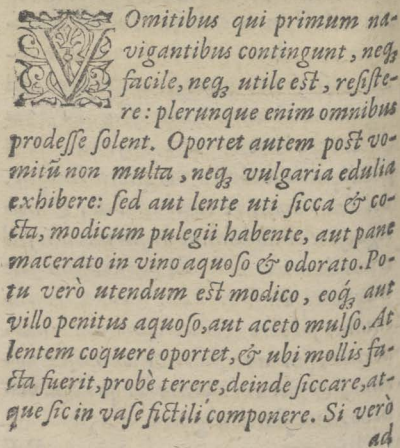 VOmitibus qui primum na-
vigantibus contingunt, neqꝫ
facile, neqꝫ utile est, resiste-
re: plerunque enim omnibus
prodesse solent. Oportet autem post vo-
mitũ non multa, neqꝫ vulgaria edulia
exhibere: sed aut lente uti sicca & co-
cta, modicum pulegii habente, aut pane
macerato in vino aquoso & odorato. Po-
tu verò utendum est modico, eoq́ꝫ aut
villo penitus aquoso, aut aceto mulso. At
lentem coquere oportet, & ubi mollis fa-
cta fuerit, probè terere, deinde siccare, at-
que sic in vase fictili componere. Si verò
ad